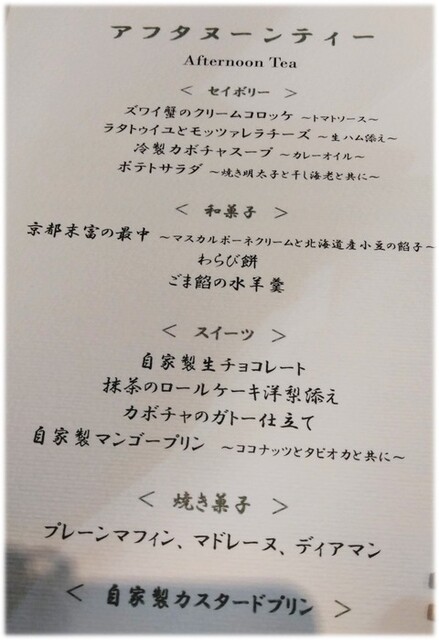 アフタヌーンティー
Afternoon Tea
< セイボリー >
ズワイ蟹のクリームコロッケ ～トマトソース～
ラタトゥイユとモッツァレラチーズ ～生ハム添え～
冷製カボチャスープ ～カレーオイル～
ポテトサラダ ～焼き明太子と干し海老と共に～
< 和菓子 >
京都末富の最中 ～マスカルポーネクリームと北海道産小豆の餡子～
わらび餅
ごま餡の水羊羹
< スイーツ >
自家製生チョコレート
抹茶のロールケーキ洋梨添え
カボチャのガトー仕立て
自家製マンゴープリン ～ココナッツとタピオカと共に～
< 焼き菓子 >
プレーンマフィン、マドレーヌ、ディアマン
< 自家製カスタードプリン >